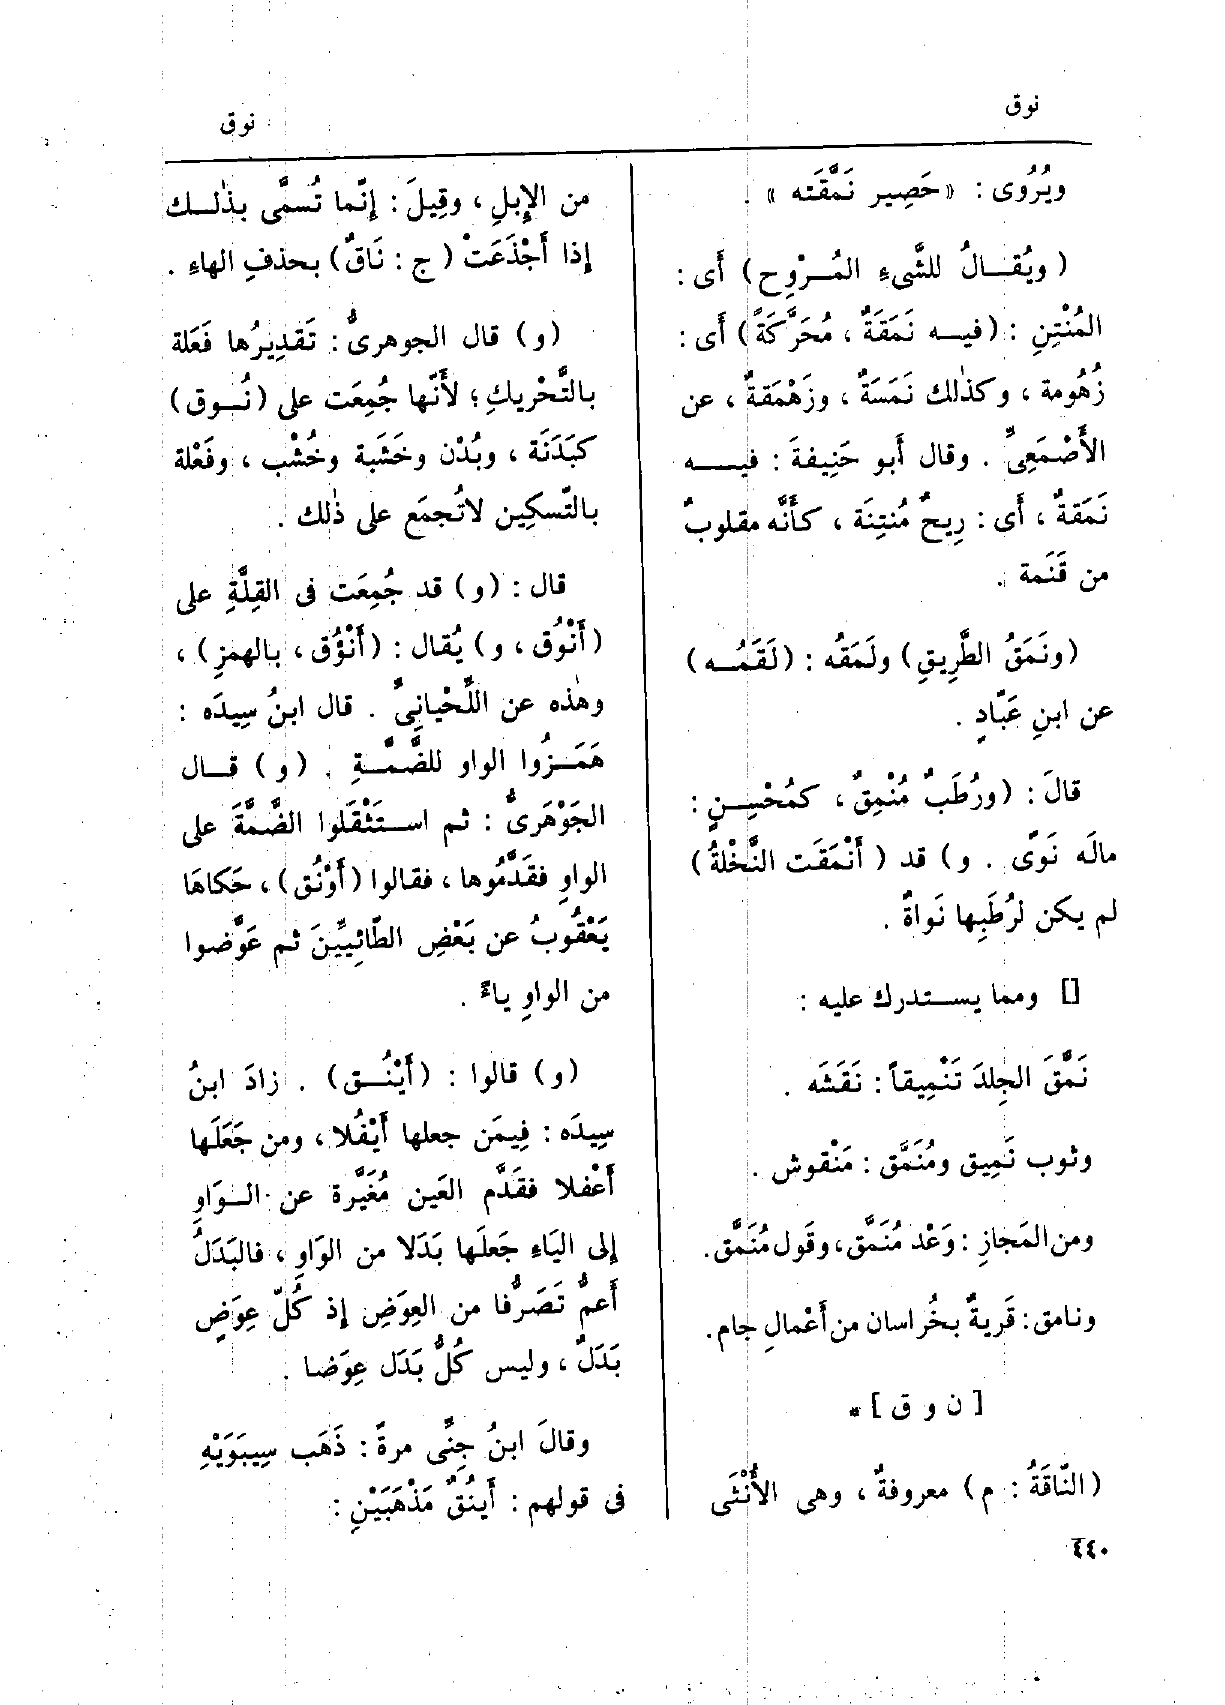 نوق
نوق
ويُرْوى : « حَصِير نَمَّقَته » .
( ويُقــالُ للشَّىءِ المُــرْوِح) أَى :
المُنْتِنِ : (فيــه نَمَقَةٌ ، مُحَرَّكَةً) أَى :
زُهُومة ، وكذٰلك نَمَسَةٌ ، وزَهْمَقةٌ ، عن
الأَصْمَعِىِّ . وقال أَبو حَنِيفةَ : فيــه
نَمَقةٌ ، أَى : رِيحٌ مُنتِنَة ، كأَنَّه مقلوبٌ
من قَنَمة .
(ونَمَقُ الطَّرِيقِ) ولَمَقُه : (لَقَمُــه)
عن ابنِ عَبّادٍ .
قالَ : (ورُطَبٌ مُنْمِقٌ ، كمُحْسِــنٍ :
مالَه نَوًى . و) قد (أَنْمَقَت النَّخْلةُ)
لم يكن لرُطَبِها نَواةٌ .
[] ومما يســتدرك عليه :
نَمَّقَ الجِلدَ تَنْمِيقاً : نَقَشَه .
وثوب نَمِيق ومُنَمَّق : مَنْقوش .
ومن المَجازِ : وَعْد مُنَمَّق ، وقَول مُنَمَّق .
ونامق : قَريةٌ بخُراسان من أَعْمالِ جام .
[ ن و ق ] *
(النّاقَةُ : م) معروفةٌ ، وهى الأُنْثَى
٤٤٠
من الإِبلِ ، وقِيلَ : إِنّما تُسمَّى بذٰلــك
إِذا أَجْذَعَتْ ( ج : نَاقٌ) بحذفِ الهاءِ .
(و) قال الجوهرىُّ : تَقدِيرُها فَعَلة
بالتَّحْريكِ ؛ لأَنّها جُمِعَت على (نُــوق)
كبَدَنَة ، وبُدْن وخَشَبة وخُشْب ، وفَعْلة
بالتّسكِين لاتُجمَع على ذٰلك .
قال : (و) قد جُمِعَت فى القِلَّةِ على
(أَنْوُق ، و) يُقال : (أَنْؤُق ، بالهمزِ) ،
وهٰذه عن اللِّحْيانِىِّ . قال ابنُ سِيدَه :
هَمَــزُوا الواو للضَّمَّــةِ . (و) قــال
الجَوْهَرىُّ : ثم اســتَثْقَلوا الضَّمَّةَ على
الواوِ فقَدَّمُوها ، فقالوا (أَوْنُق) ، حَكاهَا
يَعْقُوبُ عن بَعْضِ الطّائِيِّينَ ثم عَوَّضوا
من الواوِ ياءً .
(و) قالوا : (أَيْنُــق) . زادَ ابنُ
سِيدَه : فِيمَن جعلها أَيْفُلا ، ومن جَعَلَها
أَعْفلا فقَدَّم العَين مُغَيَّرة عن الــوَاوِ
إِلى اليَاءِ جَعلَها بَدَلا من الوَاوِ ، فالبَدَلُ
أَعمُّ تَصَرُّفا من العِوَضِ إِذ كُلُّ عِوَضٍ
بَدَلٌ ، وليس كُلُّ بَدَل عِوَضا .
وقالَ ابنُ جِنِّى مرةً : ذَهَب سِيبَوَيْهِ
فى قولهم : أَينُقٌ مَذْهَبَيْنِ :